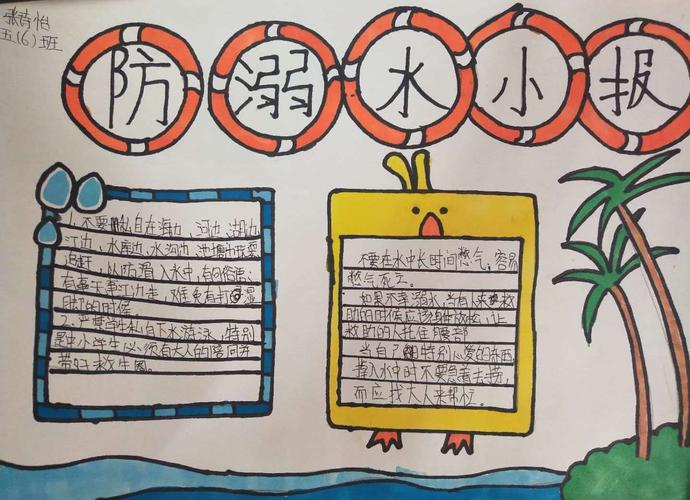 张诗怡
五(6)班
防溺水小报
1.不要私自在海边,河边,湖边
江边,水库边,水沟边,池塘边玩耍
追赶,以防滑入水中,有句俗语:
有事无事江边走,难免有打湿
的时候。
2.严禁学生私自下水游泳,特别
是中小学生必须有大人的陪同并
带好救生圈。
不要在水中长时间憋气,容易
憋气死亡。
如果不幸溺水,当有人来救
助的时候应该身体放松,让
救助的人托住腰部
当自己特别心爱的东西
掉入水中时不要急着去捞,
而应找大人来帮忙。